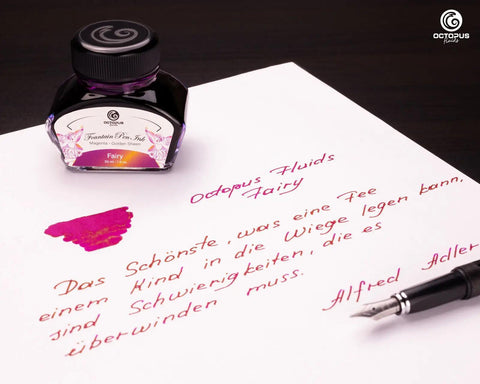 OCTOPUS
fluids
OCTOPUS
Fountain Pen Ink
Magenta - Golden Sheen
Fairy
Octopus Fluids
Fairy
Das Schönste, was eine Fee
einem Kind in die Wiege legen kann,
sind Schwierigkeiten, die es
überwinden muss.
Alfred Adler